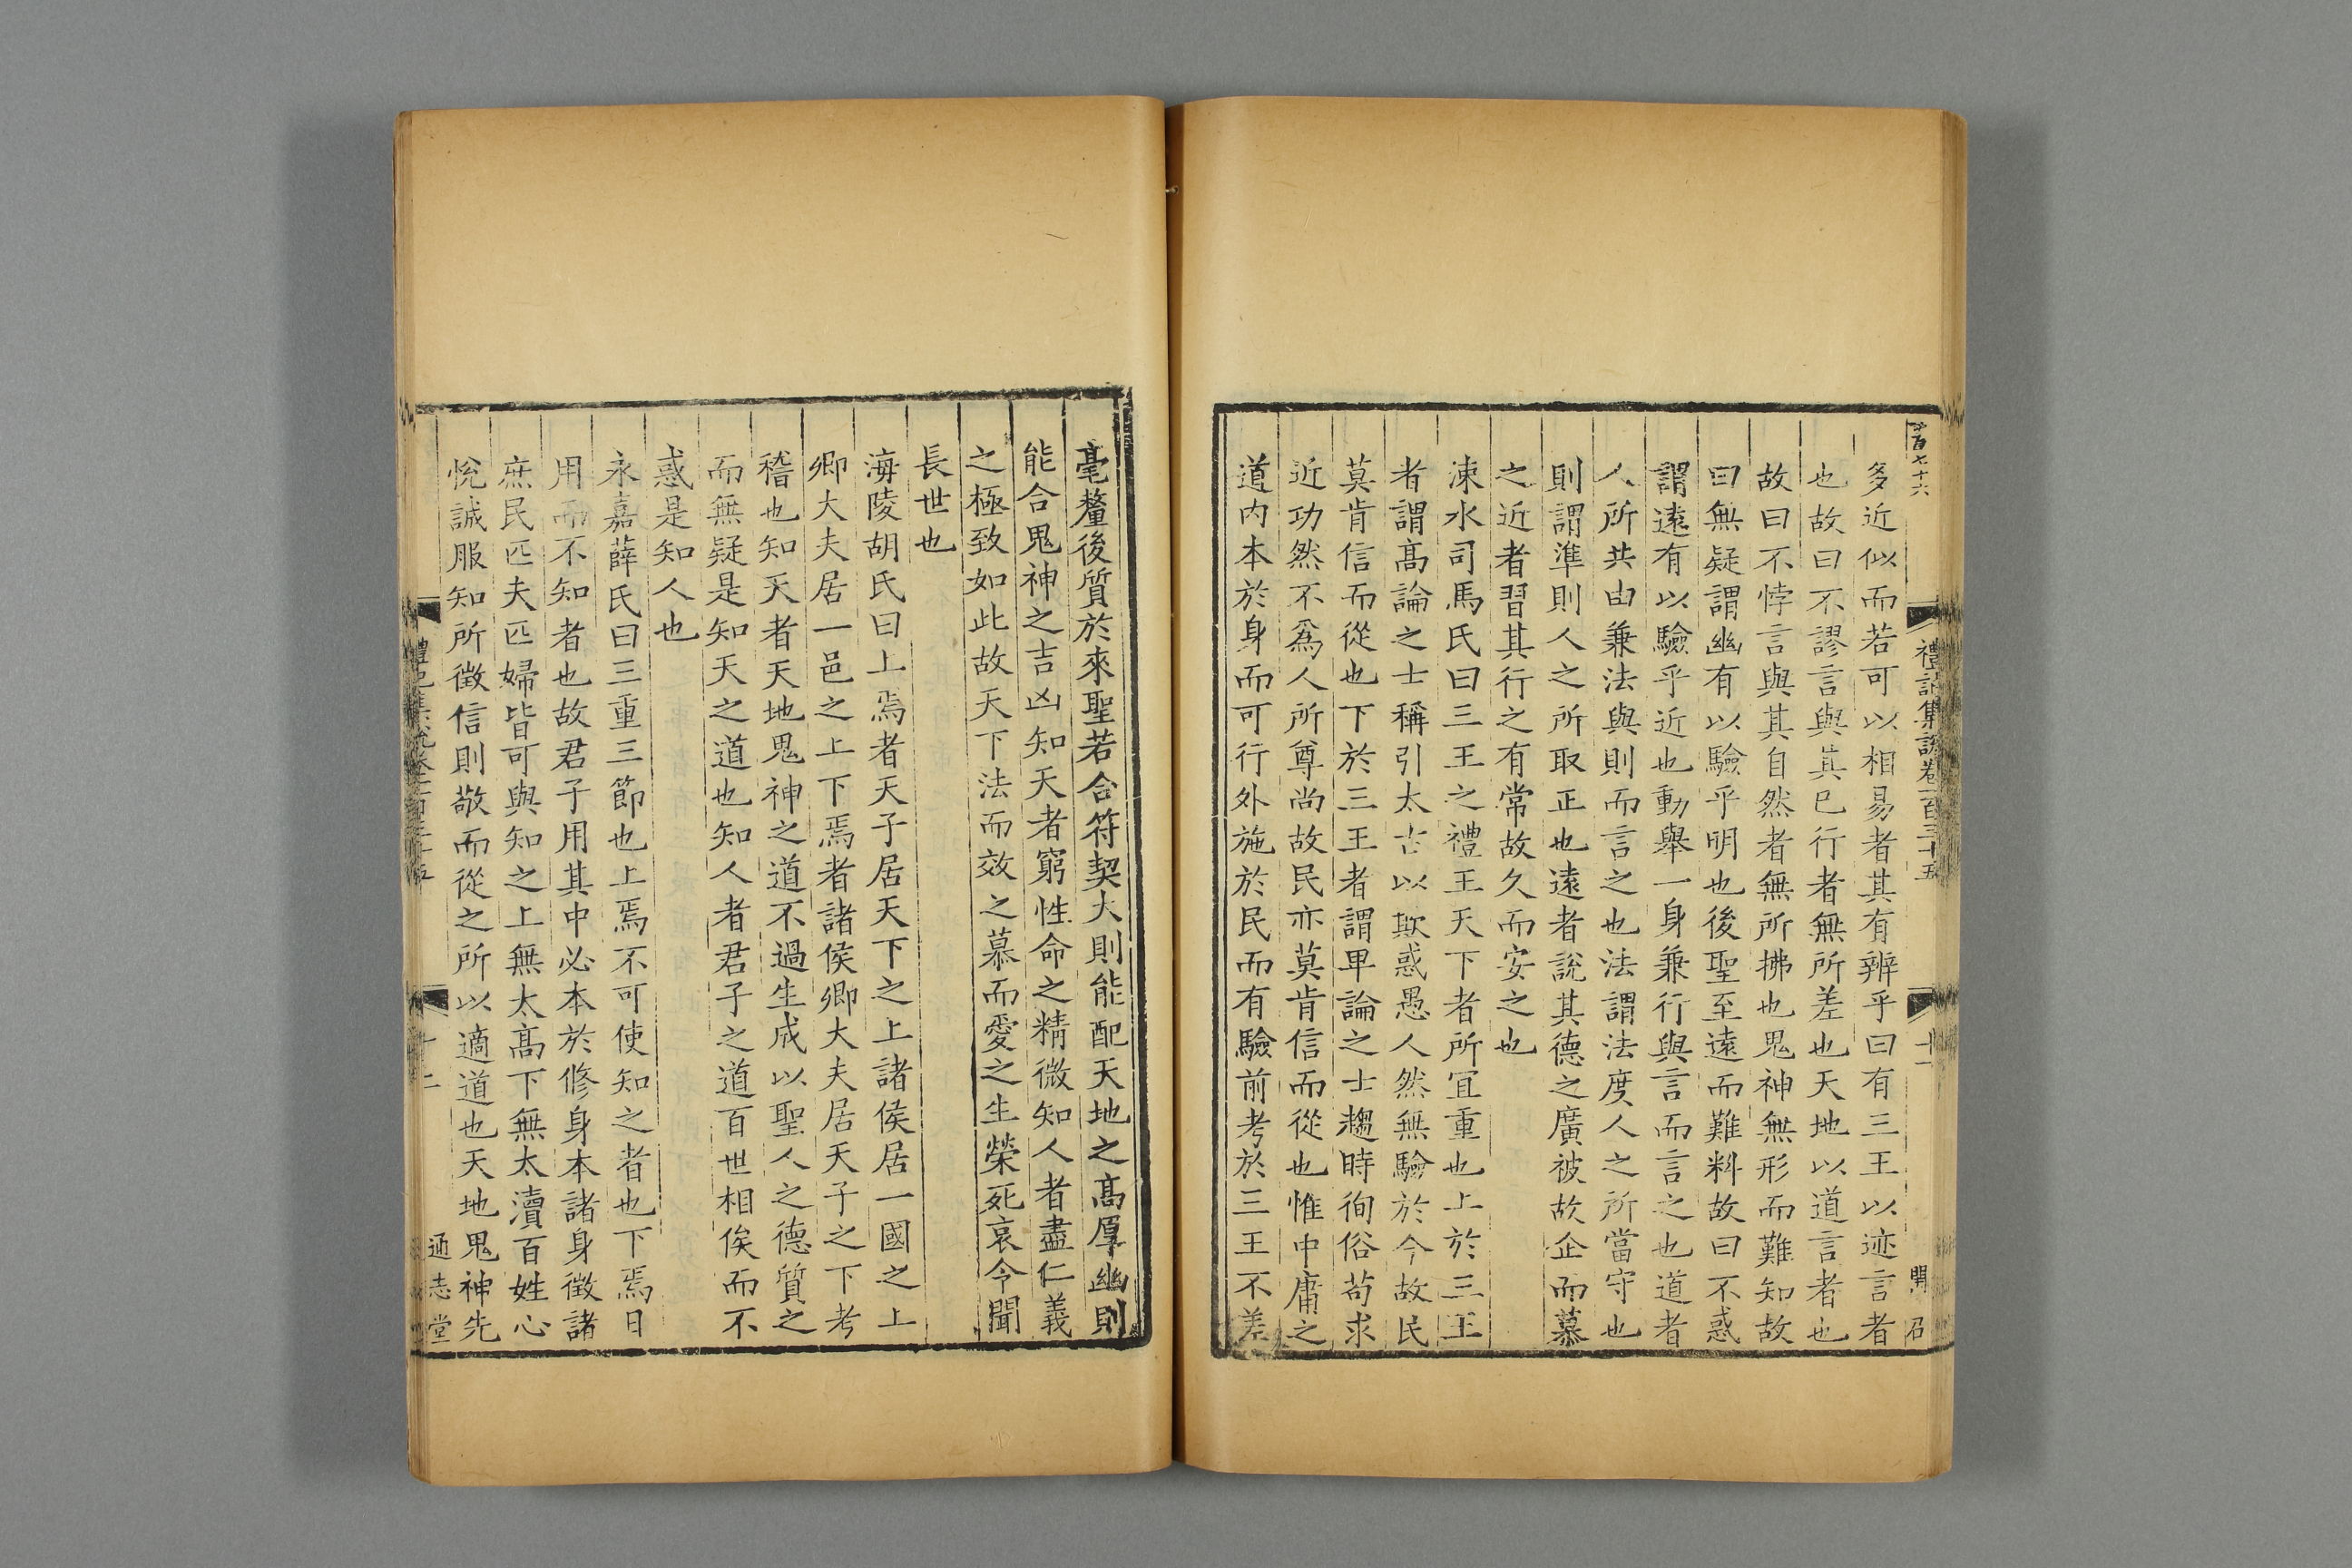 禮記集說卷一百三十五
十一
開
召
多近似而若可以相易者其有辨乎曰有三王以迹言者
也故曰不謬言與其已行者無所差也天地以道言者也
故曰不悖言與其自然者無所拂也鬼神無形而難知故
曰無疑謂幽有以驗乎明也後聖至遠而難料故曰不惑
謂遠有以驗乎近也動舉一身兼行與言而言之也道者
人所共由兼法與則而言之也法謂法度人之所當守也
則謂準則人之所取正也遠者說其德之廣被故企而慕
之近者習其行之有常故久而安之也
涑水司馬氏曰三王之禮王天下者所宜重也上於三王
者謂髙論之士稱引太古以欺惑愚人然無驗於今故民
莫肯信而從也下於三王者謂畢論之士趨時徇俗苟求
近功然不爲人所尊尚故民亦莫肯信而從也惟中庸之
道內本於身而可行外施於民而有驗前考於三王不差
毫釐後質於來聖若合符契大則能配天地之髙厚幽則
能合鬼神之吉凶知天者窮性命之精微知人者盡仁義
之極致如此故天下法而效之慕而愛之生榮死哀令聞
長世也
海陵胡氏曰上焉者天子居天下之上諸侯居一國之上
卿大夫居一邑之上下焉者諸侯卿大夫居天子之下考
稽也知天者天地鬼神之道不過生成以聖人之德質之
而無疑是知天之道也知人者君子之道百世相俟而不
惑是知人也
永嘉薛氏曰三重三節也上焉不可使知之者也下焉日
用而不知者也故君子用其中必本於脩身本諸身徵諸
庶民匹夫匹婦皆可與知之上無太髙下無太瀆百姓心
悅誠服知所徵信則敬而從之所以適道也天地鬼神先
十二
通志堂